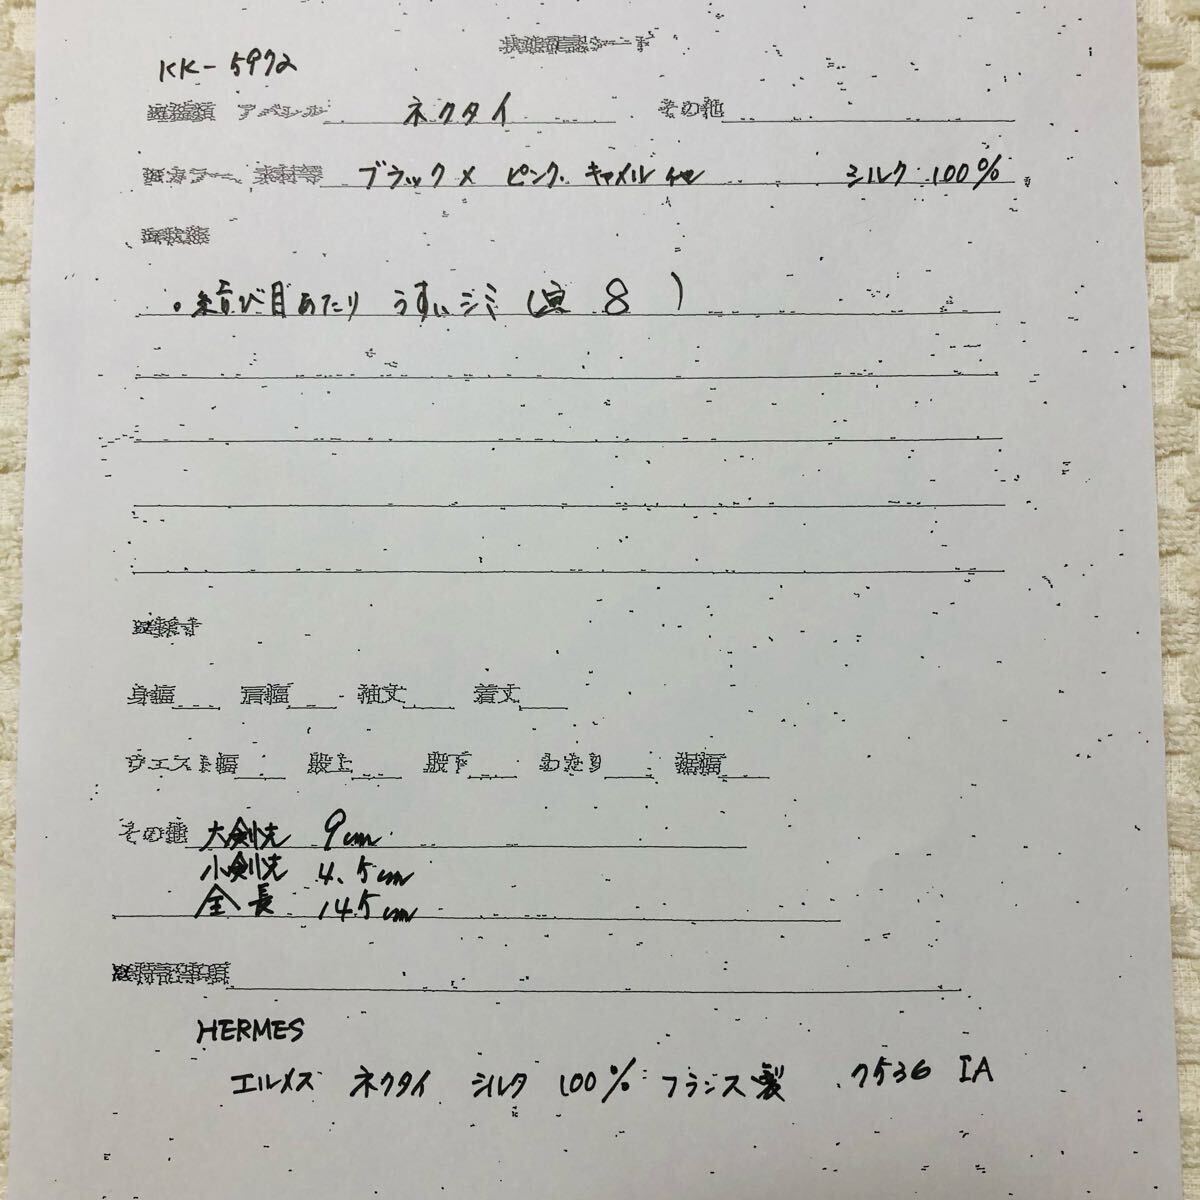 状態確認シート
KK-5972
アパレル ネクタイ その他
カラー、素材等 ブラック×ピンク.キャメル他 シルク100%
状態
。結び目あたり うすいシミ(写 8 )
採寸
身幅 肩幅 袖丈 着丈
ウエスト幅 股上 股下 わたり 裾幅
その他 大剣先 9cm
小剣先 4.5cm
全長 145cm
特記事項
HERMES
エルメス ネクタイ シルク 100% フランス製 7536 IA